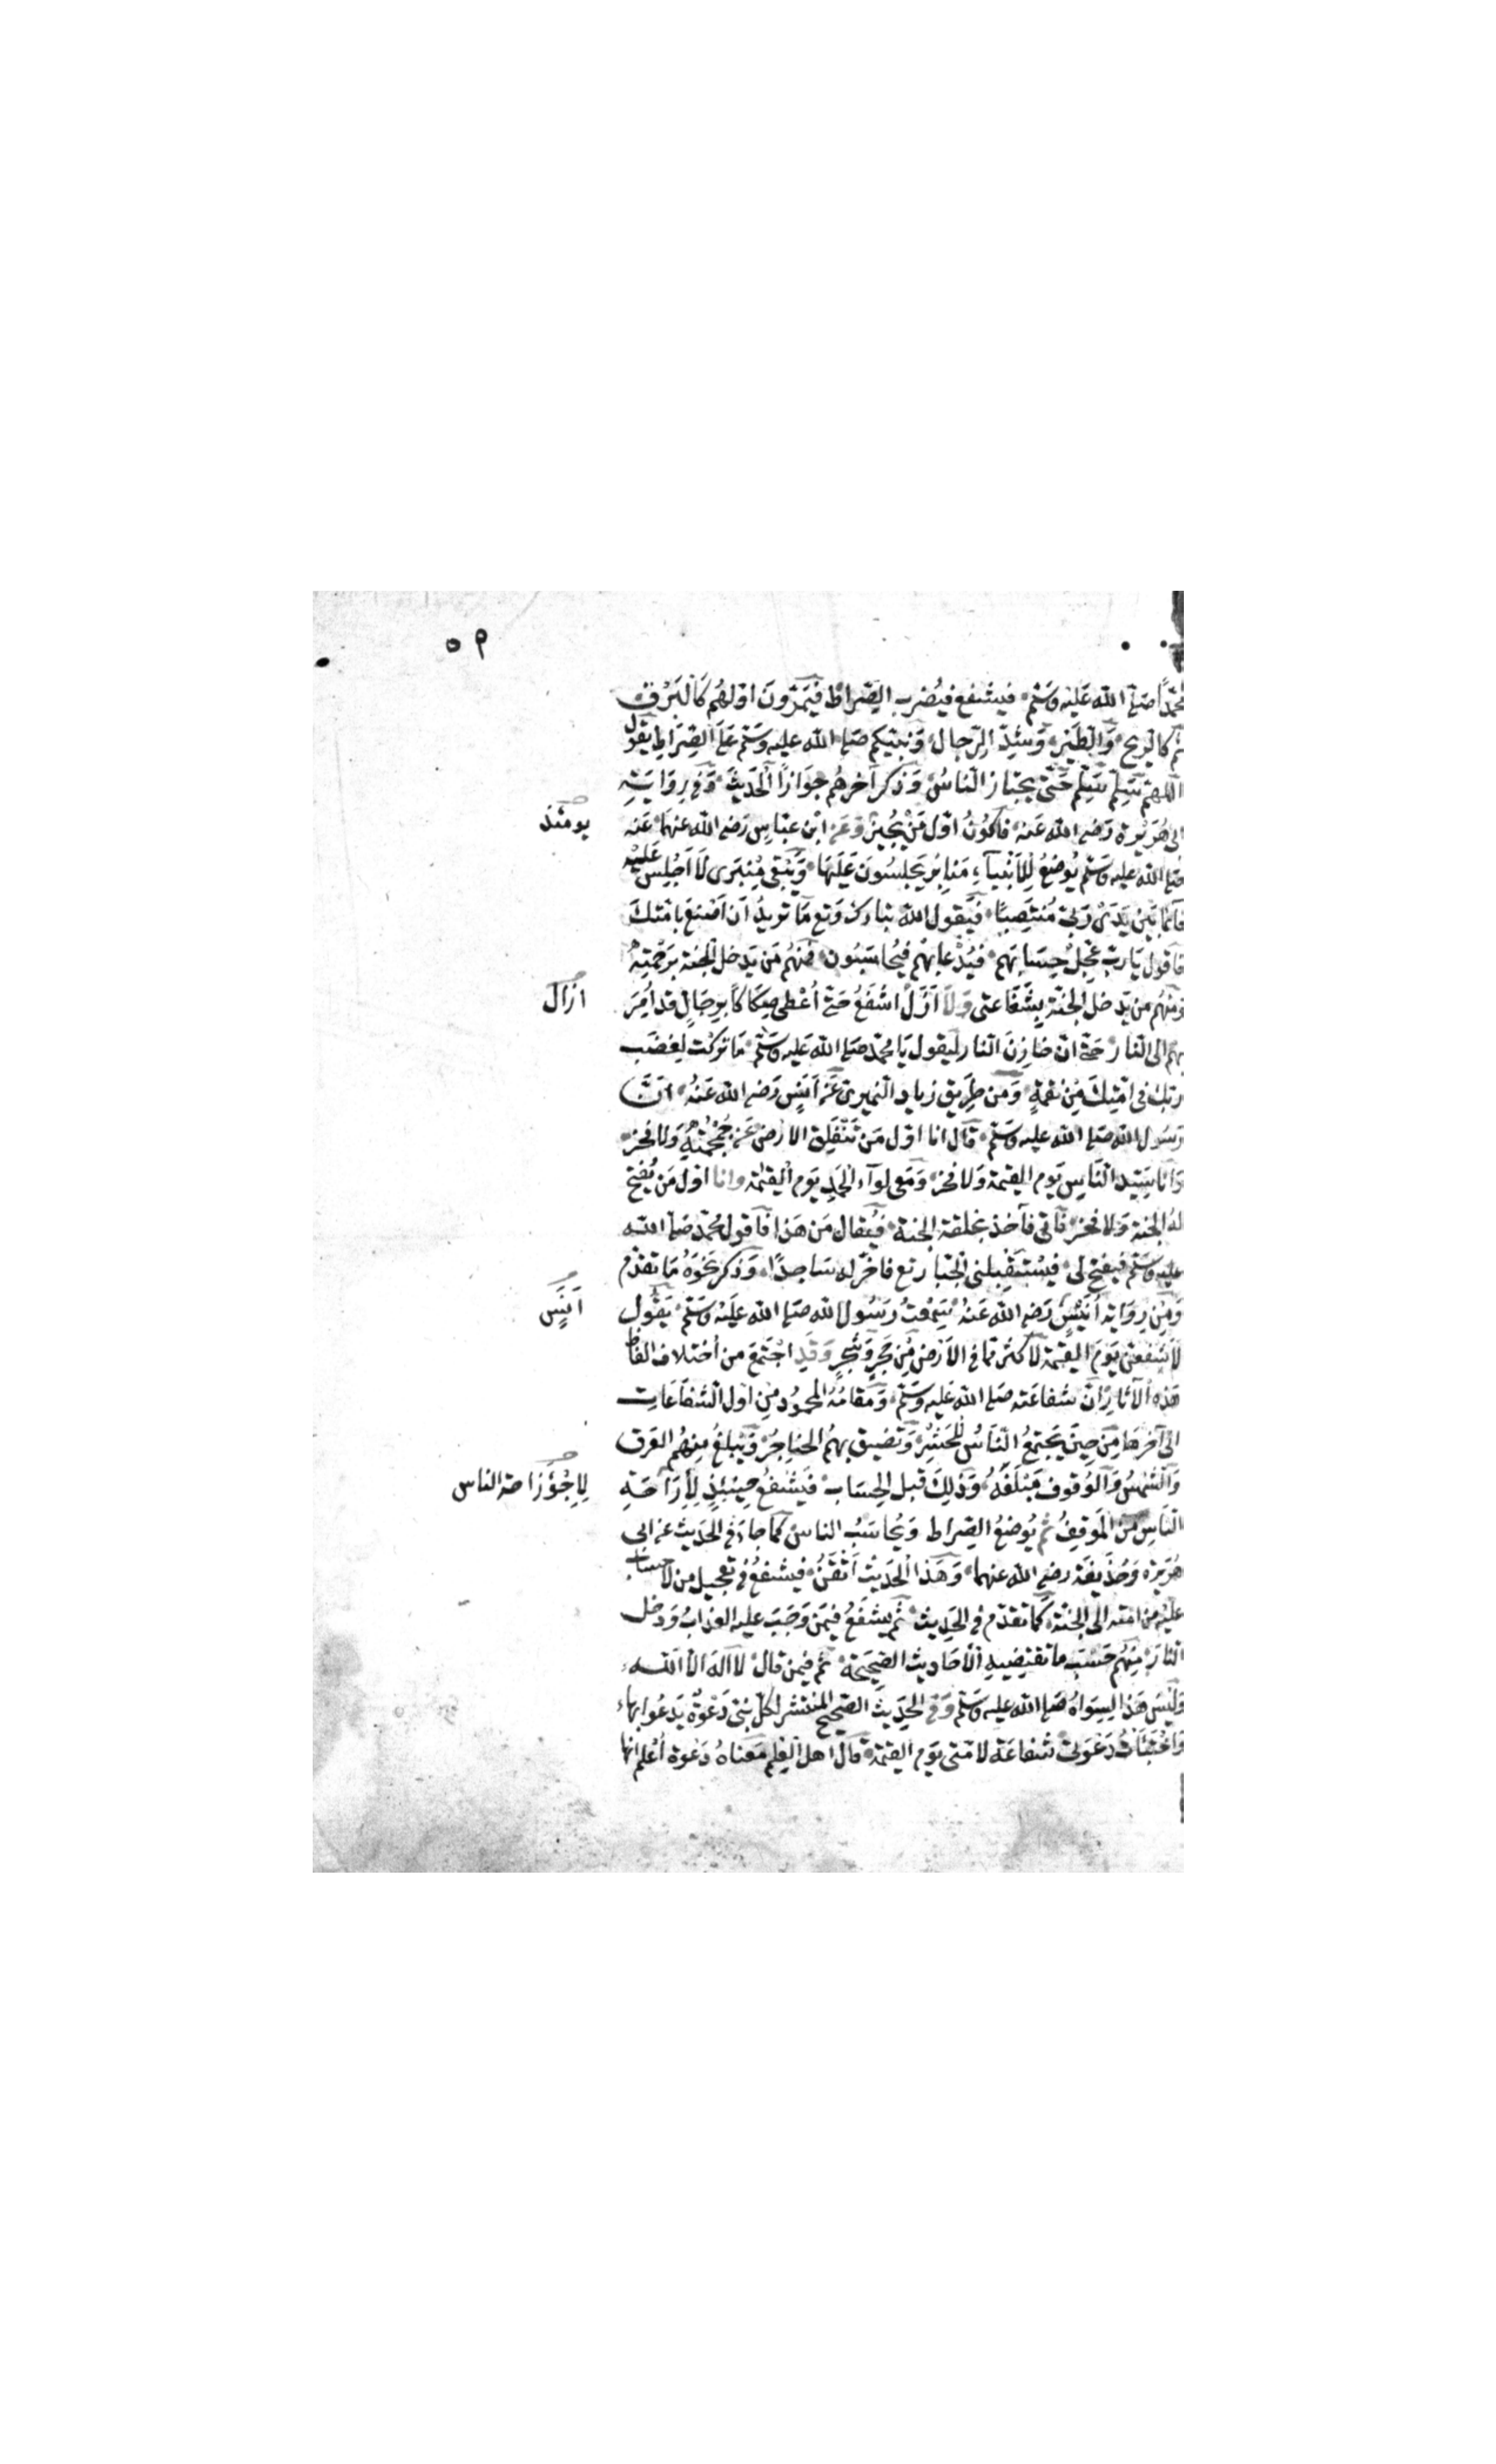 ٥٩
محمّدًا صَلّى الله عَليْه وسَلّم فيشفع فيُضرب الصِّراط فَيَمرُّونَ اوّلهُم كَالبَرْق
ثم كالريح وَالطّيْرِ وَشَدِّ الرِّجال وَنبيّكم صَلى الله عليه وسَلّم عَلَى الصِّرَاطِ يقول
اللهمّ سَلِّم سَلِّم حَتّى يجتاز النّاسُ وَذكر آخرهُم جَوَازًا الْحَديثَ وَفي رِوَايَةِ
ابي هُرَيْرة رَضي الله عَنه فاكُونُ اوّل مَنْ يُجِيزُ وَعَن ابْن عبّاسٍ رَضي الله عنهمَا عَنه
يومئذ
صَلى الله عَليه وسَلّم يُوضَعُ لِلاَنْبيآءِ مَنابِرُ يَجلِسُونَ عَلَيهَا وَيَبْقى مِنْبَرى لاَ اَجْلِسُ عَليْه
قائمًا بَيْن يَدَىْ رَبّى مُنتَصِبًا فيَقول الله تبارك وَتع مَا تريدُ اَن اَصْنعَ بامّتكَ
فاقول يَارب عَجِّل حِسَابَهم فيُدْعا بهُم فيُحاسَبُون فمنهُم مَن يَدخل الجنة برَحْمته
ومنهُم من يَدخل الجنّة بِشَفَاعتى وَلاَ اَزَلْ اشفَعُ حَتى اُعْطى صِكَاكًا بِرِجَالٍ قد اُمِرَ
ازال
بهم الى النّار حَتى انّ خازِنَ النّار ليَقول يَا محمّد صَلى الله عَليه وسَلّم مَا تركْت لِغضَب
رَبّك فى امّتِكَ مِنْ نِقمةٍ وَمن طَرِيق زياد النّميرى عَن اَنَسٍ رَضي الله عَنهُ انّ
رَسُول الله صَلى الله عليه وسَلّم قال انا اوّل مَن تَنْفَلِق الارض عَن جُمْجُمَتهِ وَلا فخر
وَانا سَيّد النّاسِ يَوم القيمة وَلا فخر وَمَعى لوَآء الحَمدِ يَوم القيمَة وانا اوّل مَن تُفتح
لهُ الجنة وَلا فخر فآتى فآخذ بحَلقة الجنة فيُقال مَن هَذا فاقول محمّد صَلى الله
عليه وسَلّم فيفتح لى فيَسْتَقْبِلنى الجبّار تع فاخرّ له سَاجِدًا وَذكر نَحْوَهُ مَا تقدّم
وَمِن رِوَاية اُنَيْسٍ رَضي الله عَنهُ سَمِعْتُ رَسُول الله صَلى الله عَليْه وسَلّم يَقُول
اَنَسٍ
لاَشفعَنّ يَومَ القيمة لاَكثر مما فى الاَرْض مِن حَجَرٍ وَشَجَرٍ وَقدِ اجْتمَعَ من اختلاف الفاظ
هَذه الآثارِ اَنّ شفاعَته صَلى الله عَليه وسَلّم وَمَقامَهُ المحمُودَ مِن اوّل الشّفاعَات
الى آخرهَا مِن حِينَ يَجتمعُ النّاسُ لِلحَشْرِ وَتضيق بهمُ الحناجرُ وَيَبلغُ مِنهُم العَرق
وَالشّمْسُ وَالوُقوف مَبْلغَهُ وَذلِكَ قبل الحِسَاب فَيَشفعُ حِينئِذٍ لِاِرَاحَةِ
النّاسِ مِنَ المَوقِفِ ثم يُوضعُ الصِّراط وَيُحاسَبُ الناس كمَا جاء فى الحَديث عَن ابى
هُرَيْرة وَحُذيفَة رضي الله عنهما وَهَذا الْحَديث اَتْقَنُ فيشفعُ فى تعجيل من لا حِسابَ
عليْه من امّته الى الجنة كمَا تقدّم فى الحَدِيث ثم يشفَعُ فيمَن وَجَبَ عليه العذابُ وَدخل
النّار مِنهُم حَسَبَ ما تقتضيهِ الاَحَاديث الصّحيحَة ثم فيمَن قال لا اله الا الله
وَليْسَ هَذا لِسِوَاهُ صَلى الله عليه وسَلّم وَفى الحَدِيثِ الصّحيح المنتشر لكلّ نبى دَعْوَةٌ يَدعُوا بهَا
وَاختَبَاْتُ دَعْوَتى شفاعَة لامّتى يَوم القيمة قال اهل العِلم مَعْناهُ دَعْوَة اُعْلِم انها